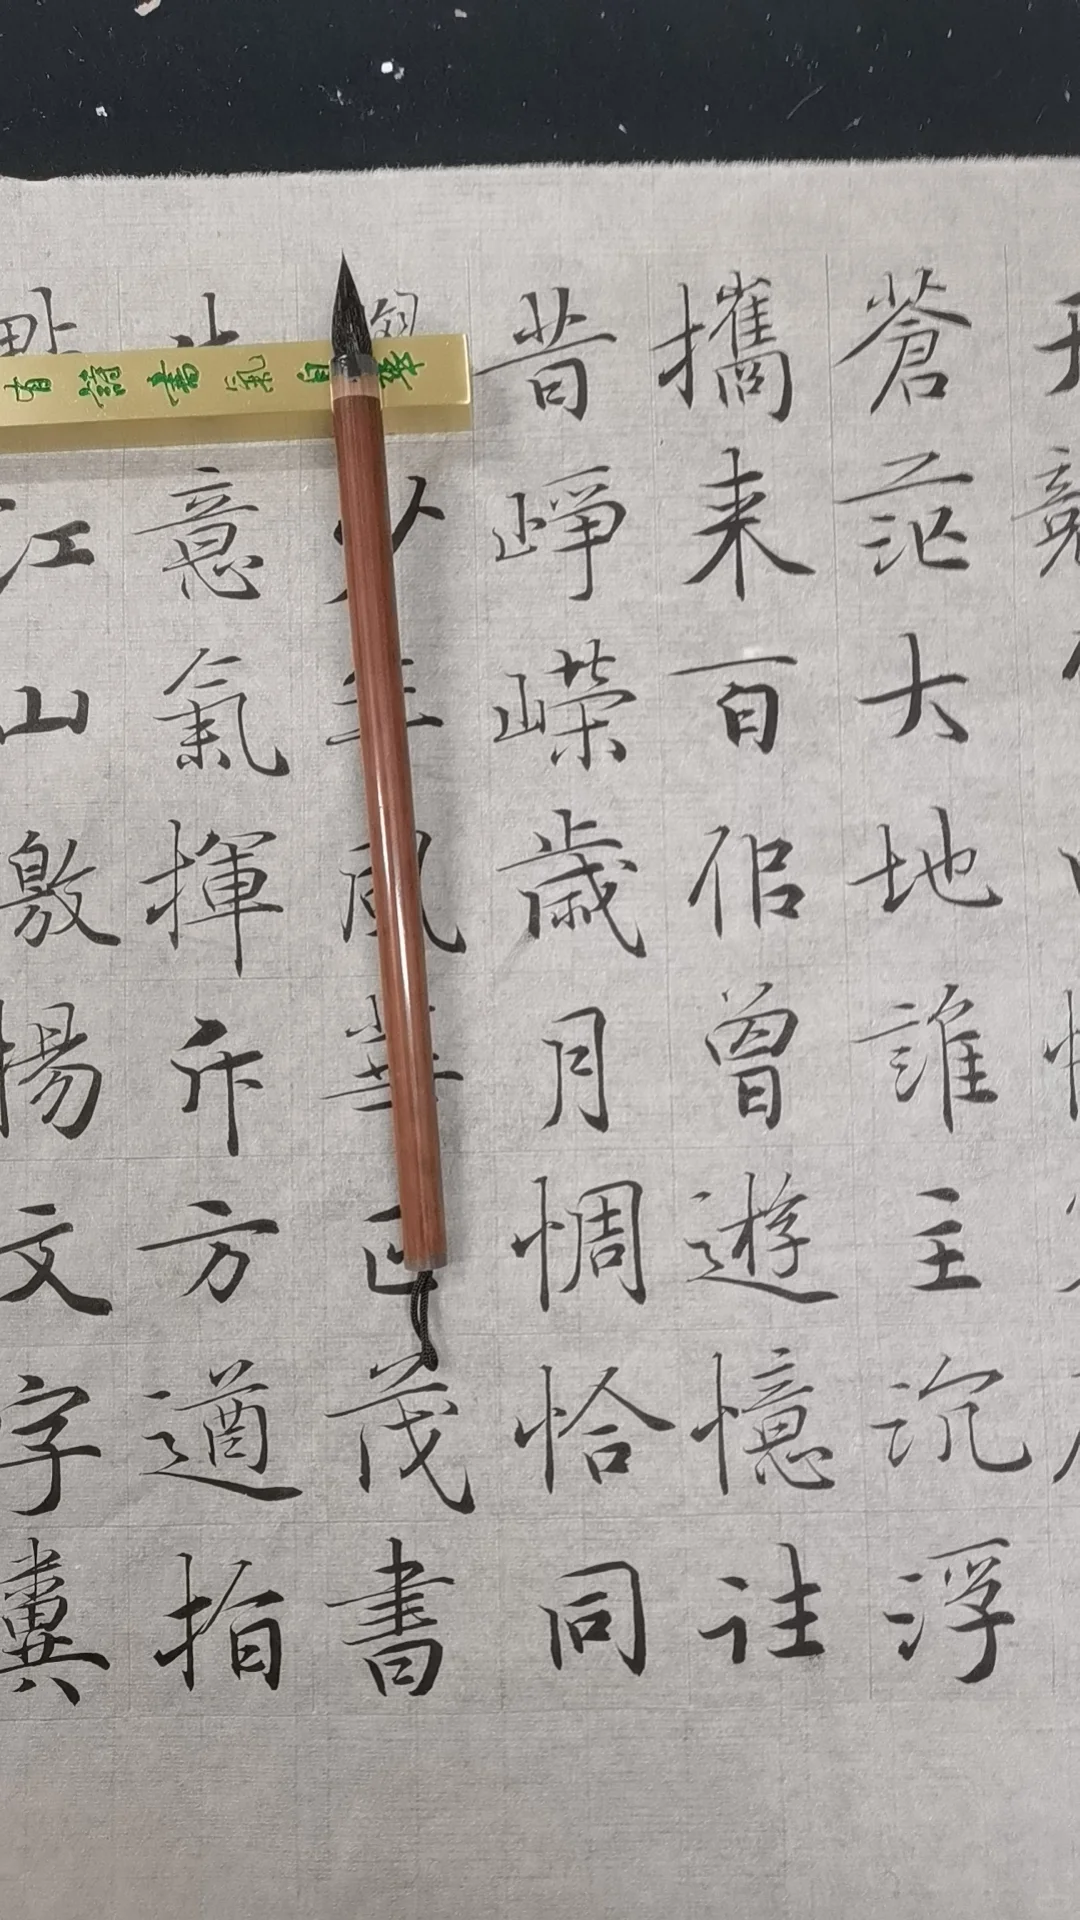 蒼茫大地誰主沉浮
攜來百侶曾遊憶往
昔崢嶸歲月惆恰同
少年風華正茂書
意氣揮斥方遒指
江山激揚文字糞
有詩書氣自華